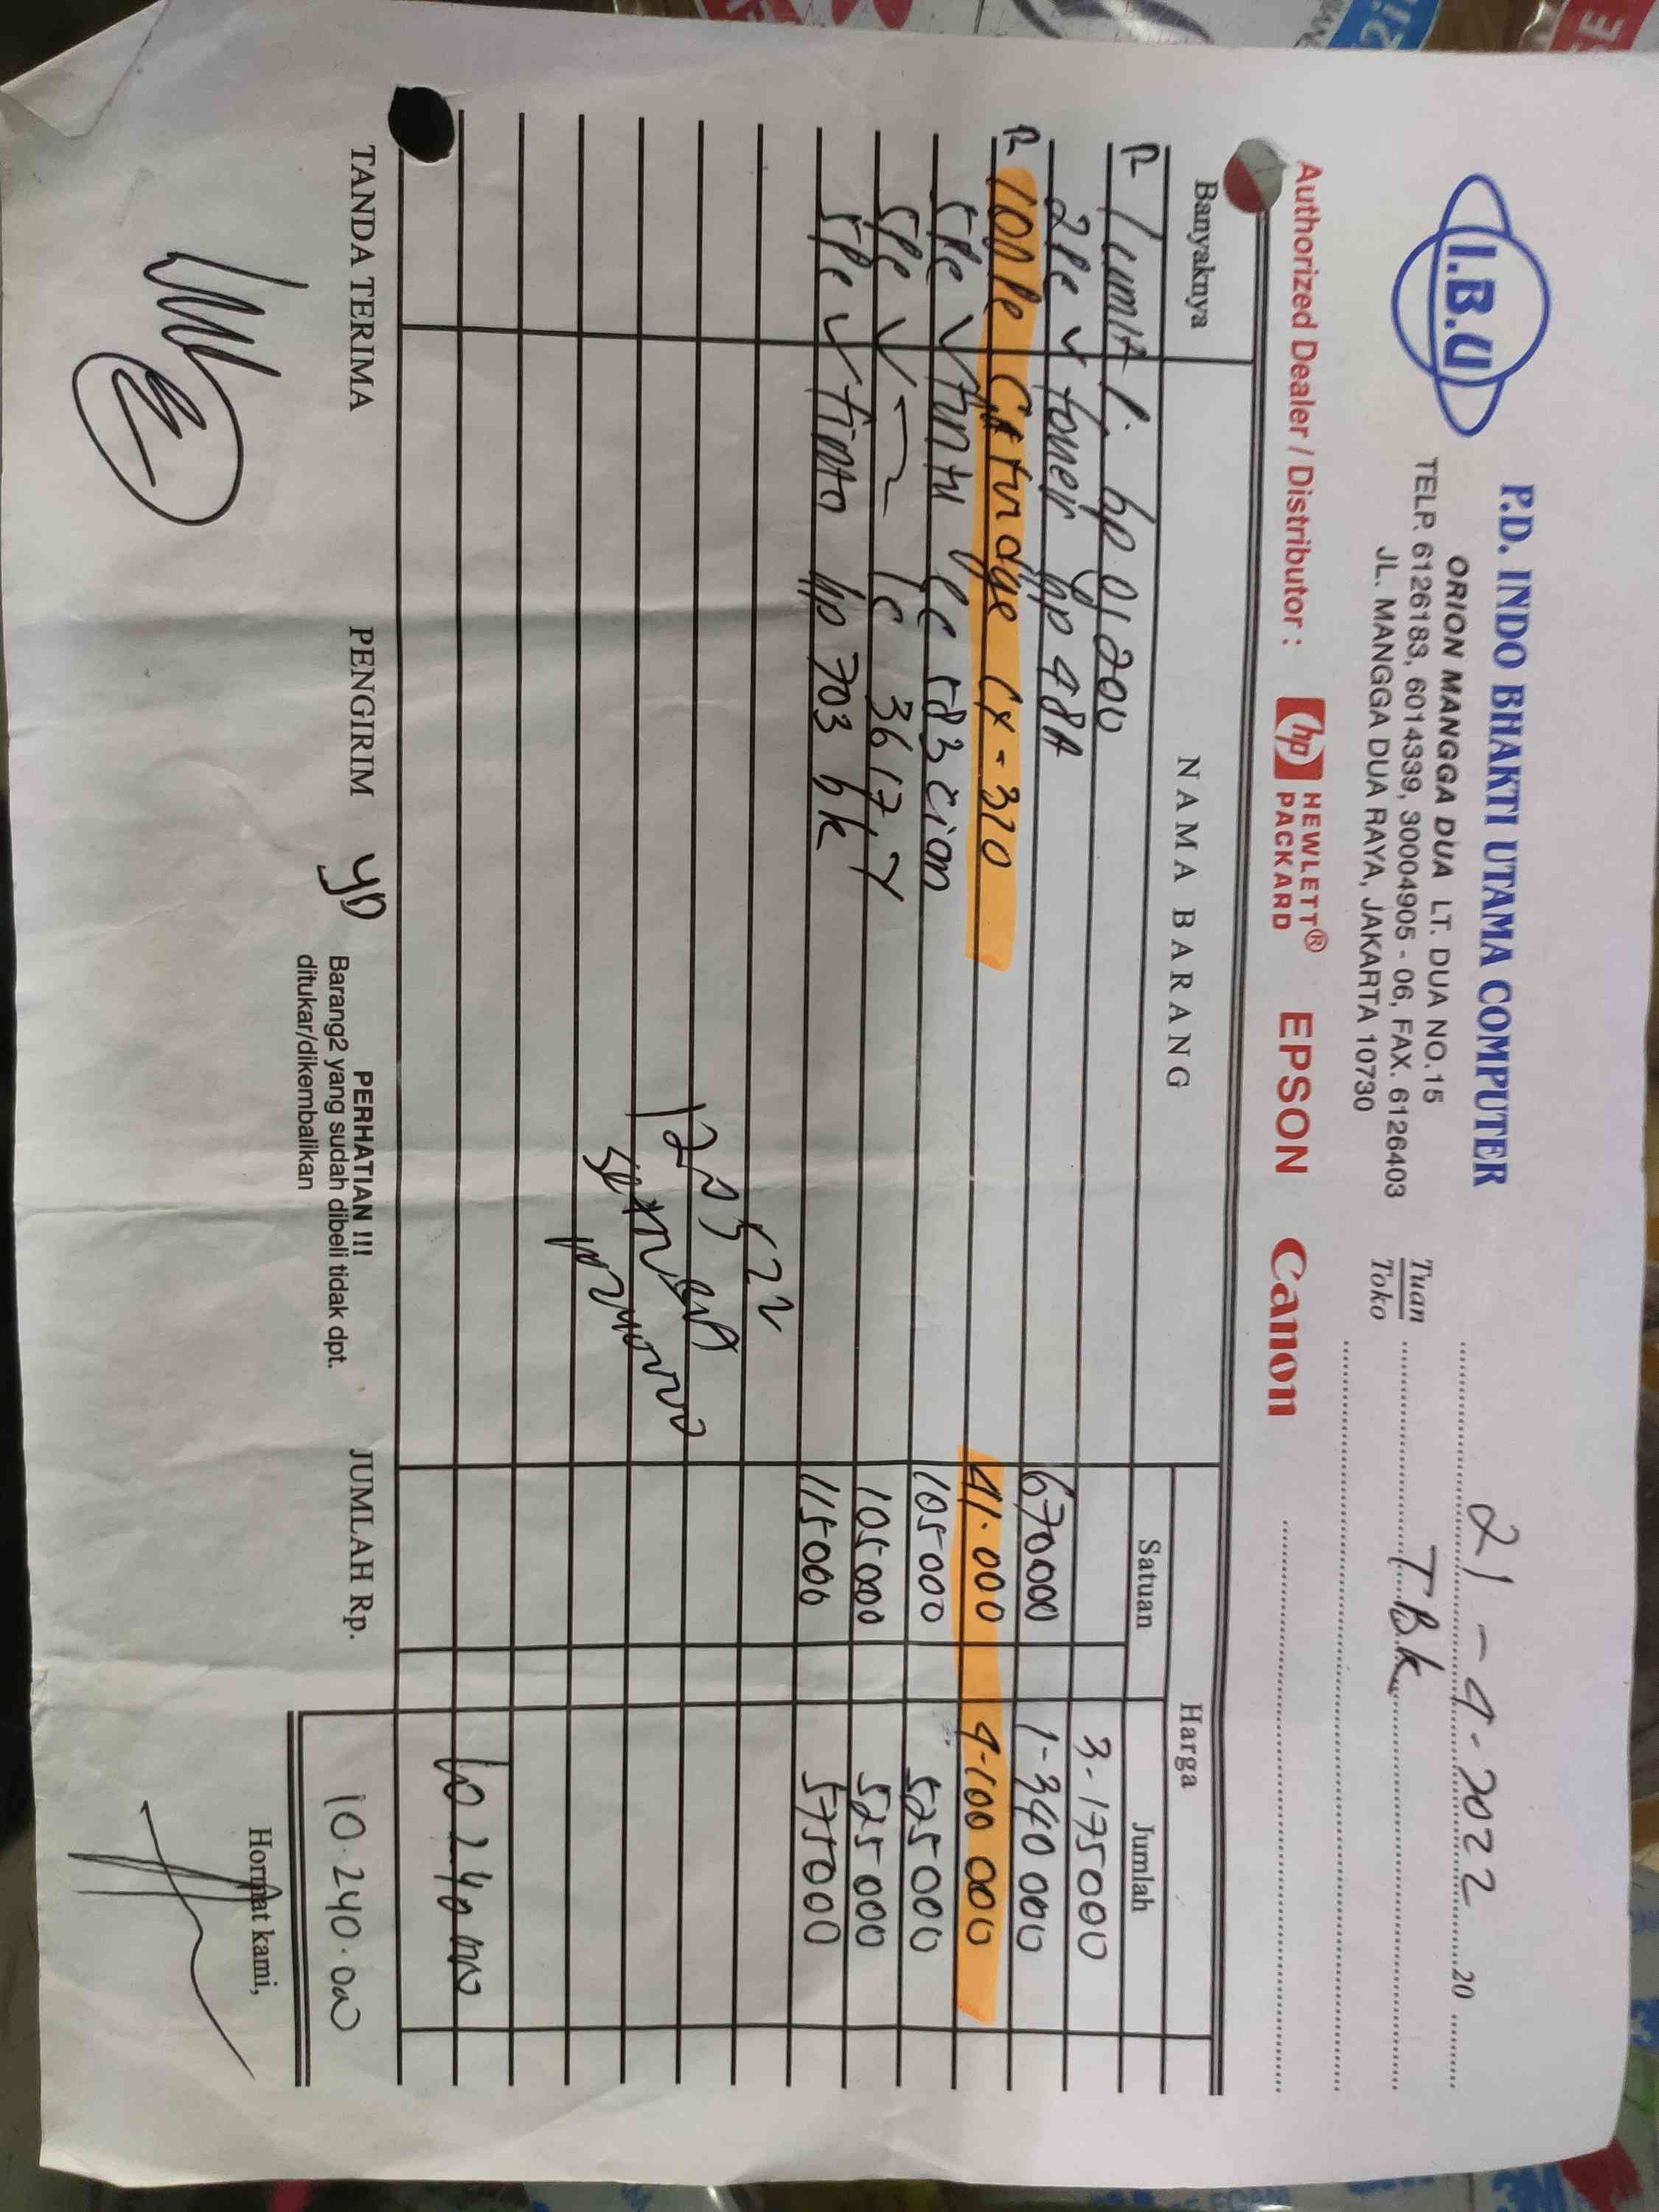 I.B.U
P.D. INDO BHAKTI UTAMA COMPUTER
ORION MANGGA DUA LT. DUA NO.15
TELP. 6126183, 6014339, 30004905 - 06, FAX. 6126403
JL. MANGGA DUA RAYA, JAKARTA 10730
21-4-2022 20
Tuan
Toko
TBk
Authorized Dealer / Distributor : hp HEWLETT® PACKARD EPSON Canon
Banyaknya NAMA BARANG Harga
Satuan Jumlah
1 unit hp 01200 3-175000
2 Pc toner hp 48A 670000 1-340 000
100 Pc Catridge CX-310 41.000 4-100 000
5 Pc tinta 105000 525000
5 Pc 105000 525000
5 Pc tinta hp 703 bk 115000 575000
10 240
TANDA TERIMA PENGIRIM JUMLAH Rp. 10.240.000
PERHATIAN !!!
Barang2 yang sudah dibeli tidak dpt.
ditukar/dikembalikan
Hormat kami,